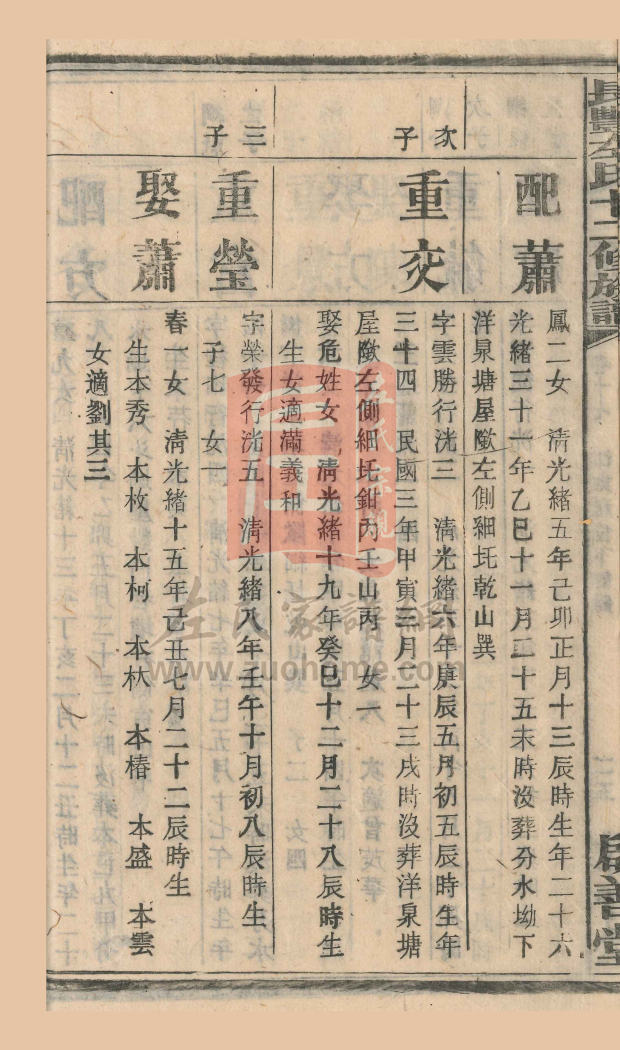 長豐左氏十二修族譜
啟善堂
配蕭
鳳二女 清光緒五年己卯正月十三辰時生年二十六
光緒三十一年乙巳十一月二十五未時沒葬分水坳下
洋泉塘屋墩左側細坵乾山巽
次子
重交
字雲勝行洸三 清光緒六年庚辰五月初五辰時生年
三十四 民國三年甲寅三月二十三戌時沒葬洋泉塘
屋墩左側細坵鉗丙壬山丙 女一
娶危姓女 清光緒十九年癸巳十二月二十八辰時生
生女適滿義和
三子
重瑩
字榮發行洸五 清光緒八年壬午十月初八辰時生
子七 女一
娶蕭
春一女 清光緒十五年己丑七月二十二辰時生
生本秀 本枚 本柯 本杕 本椿 本盛 本雲
女適劉其三
左氏家譜網
www.zuohome.com